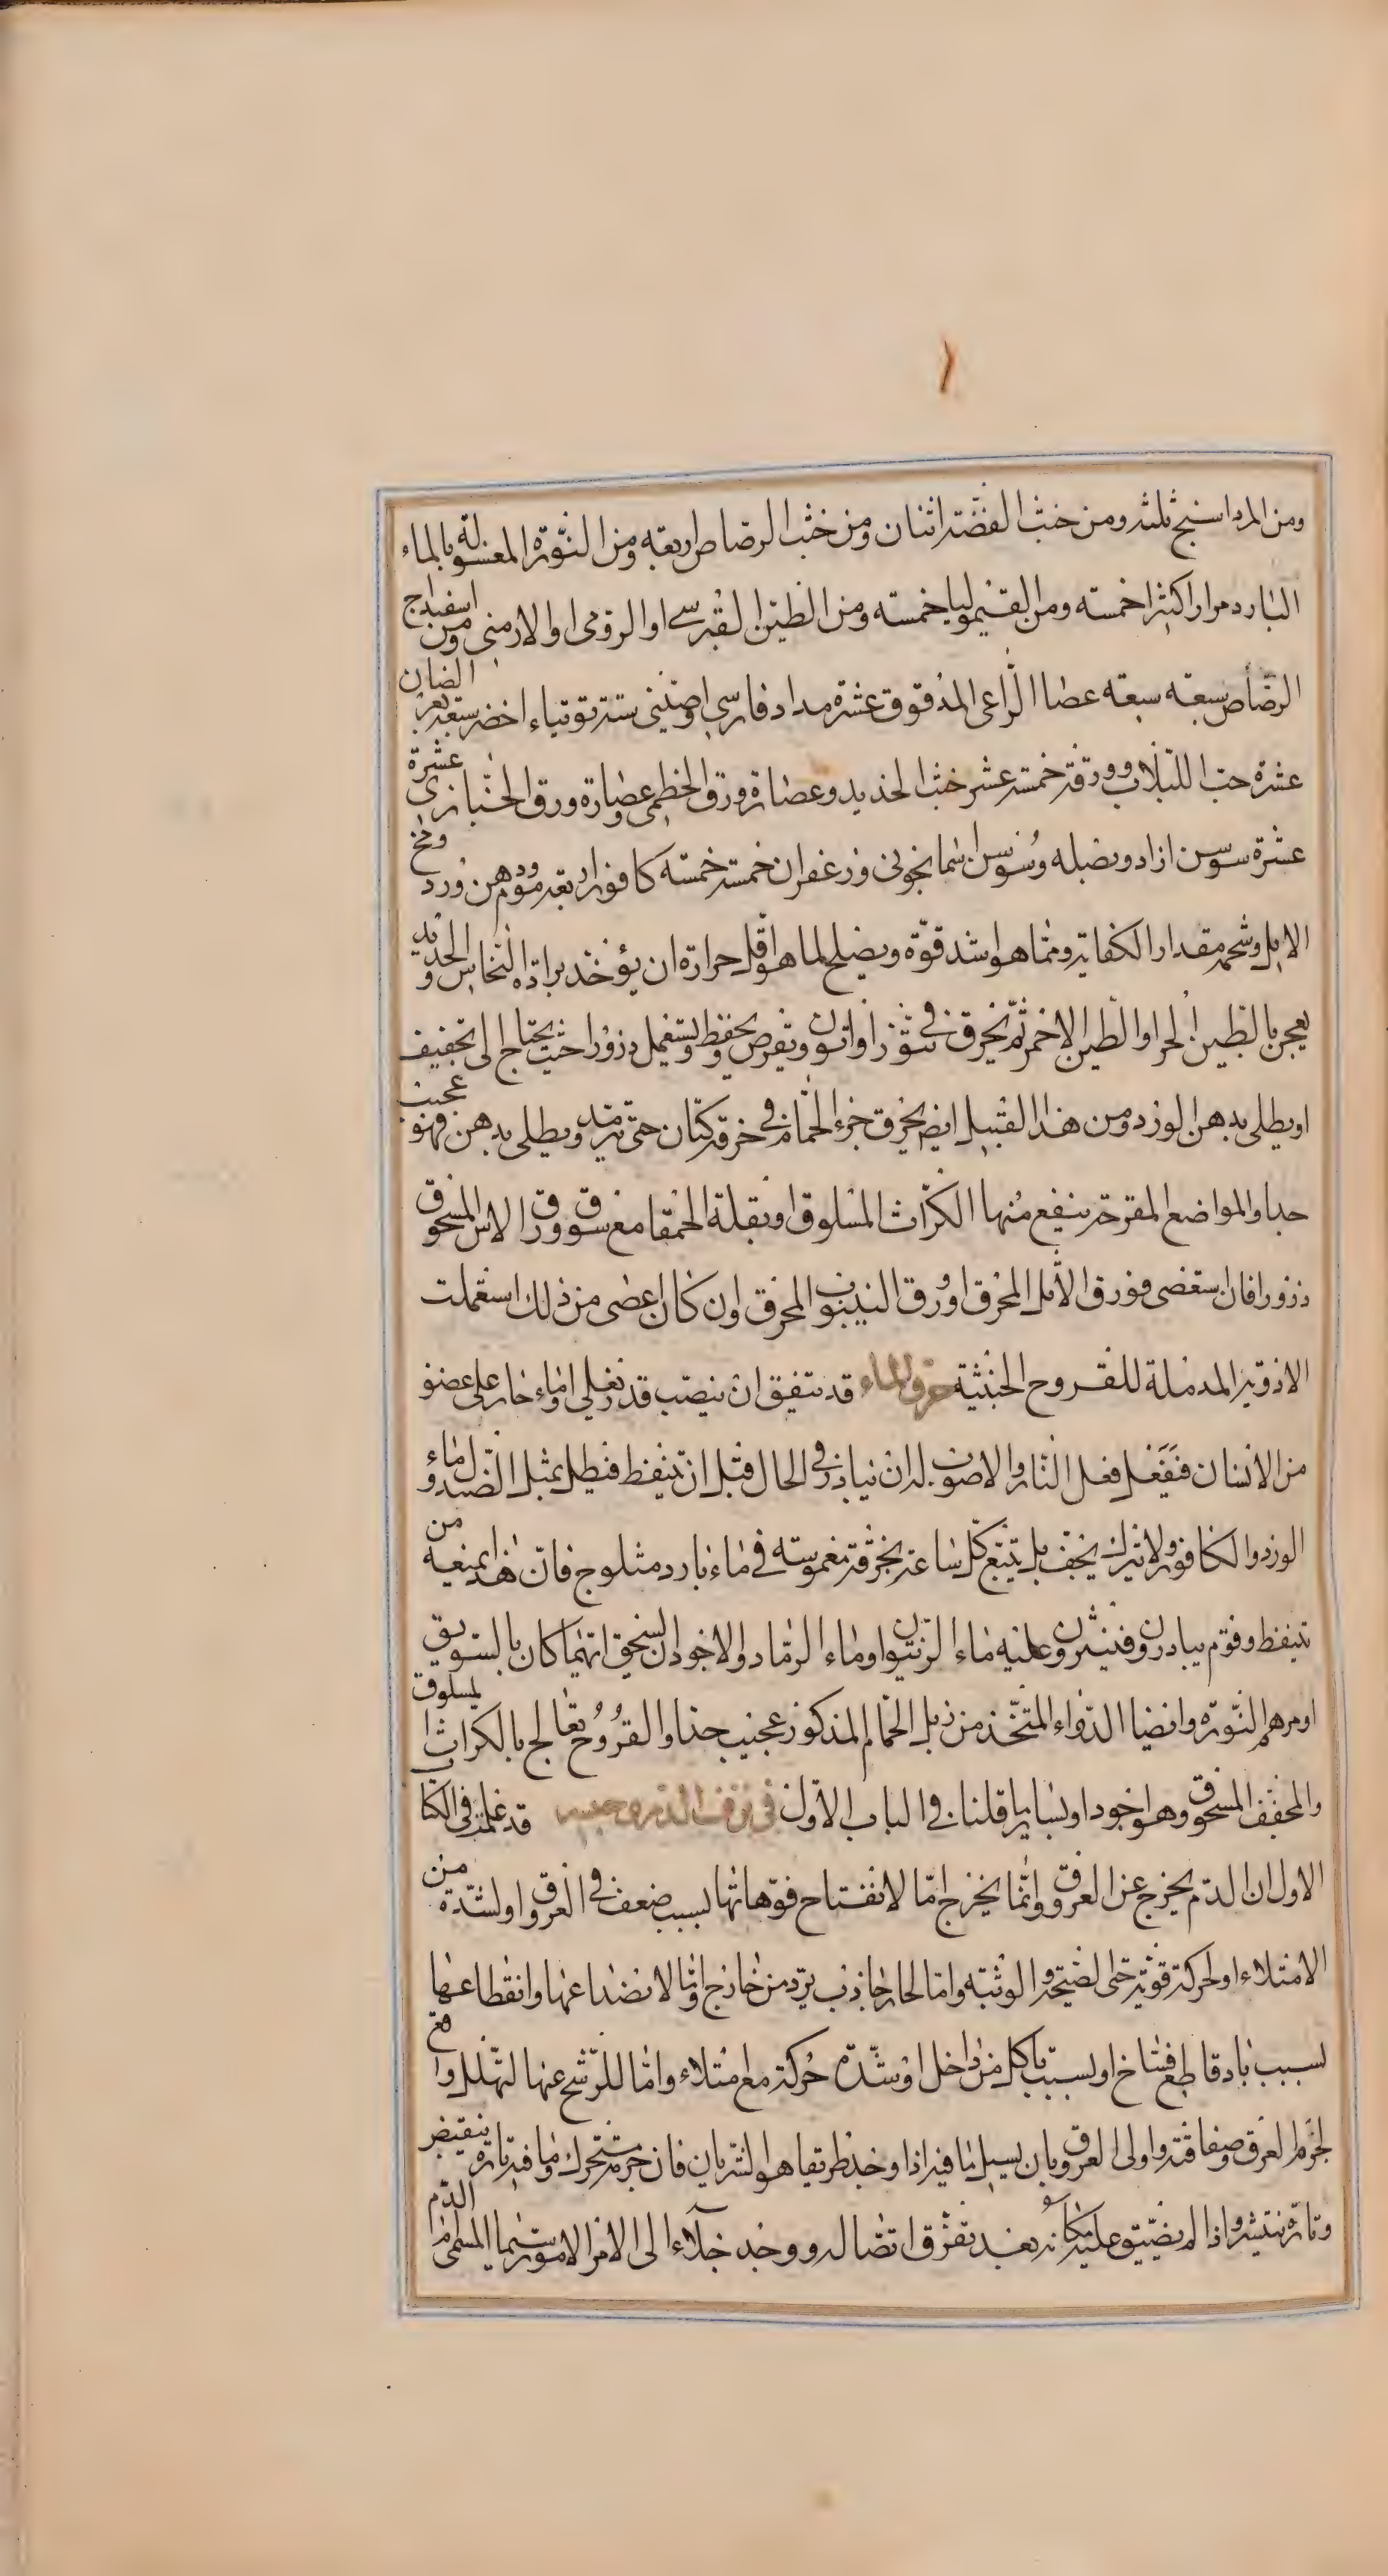 ومن المرداسنج ثلثه ومن خبث الفضة اثنان ومن خبث الرصاص اربعه ومن النورة المغسولة بالماء
البارد مرارا كثيرا خمسه ومن القيموليا خمسه ومن الطين القبرسي او الرومي او الارمني ومن اسفيداج
الرصاص سبعه سبعه عصا الراعي المدقوق عشرة مداد فارسي او صيني ستة توتياء اخضر سبعه بعر الضان
عشرة حب اللبلاب وورقه خمسة عشر خبث الحديد وعصارة ورق الخطمي وعصارة ورق الخبازى عشرة
عشرة سوسن ازاد وبصله وسوسن اسمانجونى وزعفران خمسه خمسه كافور اربعه موم ودهن ورد ومخ
الايل وشحمه مقدار الكفاية ومما هو اشد قوة ويصلح لما هو اقل حرارة ان يؤخذ برادة النحاس والحديد
يعجن بالطين الحر او الطين الاحمر ثم يحرق في تنور او اتون ويقرص ويحفظ ويستعمل ذرورا حيث يحتاج الى تجفيف
او يطلى بدهن الورد ومن هذا القبيل ايضا يحرق خرء الحمام في خرقة كتان حتى يرمد ويطلى بدهن فهو عجيب
جدا والمواضع المقرحة ينفع منها الكراث المسلوق او بقلة الحمقا مع سويق وورق الاس المسحوق
ذرورا فان استعصى فورق الاثل المحرق او ورق الينبوت المحرق وان كان اعصى من ذلك استعملت
الادوية المدملة للقروح الخبيثة حرق الماء قد يتفق ان ينصب قدر تغلي او ماء حار على عضو
من الانسان فيفعل فعل النار والاصوب له ان يبادر في الحال قبل ان يتنفط فيطلى بمثل الصندل وماء
الورد والكافور ولا يترك يجف بل يتبع كل ساعة بخرقة مغموسه في ماء بارد مثلوج فان هذا يمنعه من
تنفط وقوم يبادرون فينثرون عليه ماء الزيتون او ماء الرماد والاجود ان يسحق ايهما كان بالسويق
او مرهم النورة وايضا الدواء المتخذ من زبل الحمام المذكور عجيب جدا والقروح تعالج بالكراث المسلوق
والمجفف المسحوق وهو اجود او بساير ما قلنا في الباب الاول في نزف الدم وحبسه قد علمت في الكتاب
الاول ان الدم يخرج عن العروق وانما يخرج اما لانفتاح فوهاتها بسبب ضعف في العروق او لشدة من
الامتلاء او لحركة قوية حتى الصيحة والوثبه واما لحار جاذب يرد من خارج واما لانصداعها وانقطاعها
لسبب باد قاطع او فساخ او لسبب تاكل من داخل او شدة حركة مع امتلاء واما للرشح عنها لتهلل واقع
لجرم العرق وصفاقته واولى العروق بان يسيل ما فيه اذا وجد طريقا هو الشريان فان جرمه متحرك وما فيه تارة ينقبض
وتارة ينتشر واذا لم يضيق عليه مكانه بعد تفرق اتصاله ووجد خلاء الى الامر المسمى الدم